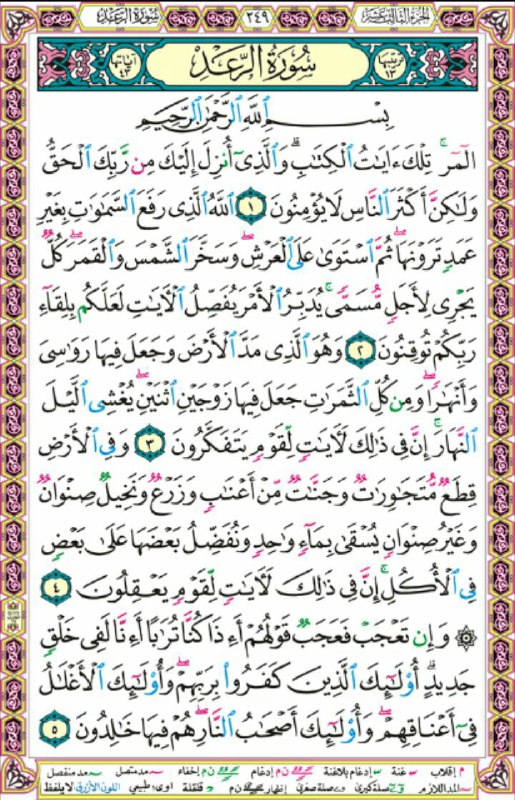 سُورَةُ الرَّعْدِ ٢٤٩ الجزء الثالث عشر
ترتيبها ١٣ سُورَةُ الرَّعْدِ آياتها ٤٣
بِسْمِ اللَّهِ الرَّحْمَٰنِ الرَّحِيمِ
الٓمٓر ۚ تِلْكَ ءَايَٰتُ الْكِتَٰبِ ۗ وَالَّذِىٓ أُنزِلَ إِلَيْكَ مِن رَّبِّكَ الْحَقُّ
وَلَٰكِنَّ أَكْثَرَ النَّاسِ لَا يُؤْمِنُونَ ١ اللَّهُ الَّذِى رَفَعَ السَّمَٰوَٰتِ بِغَيْرِ
عَمَدٍ تَرَوْنَهَا ۖ ثُمَّ اسْتَوَىٰ عَلَى الْعَرْشِ ۖ وَسَخَّرَ الشَّمْسَ وَالْقَمَرَ ۖ كُلٌّ
يَجْرِى لِأَجَلٍ مُّسَمًّى ۚ يُدَبِّرُ الْأَمْرَ يُفَصِّلُ الْءَايَٰتِ لَعَلَّكُم بِلِقَآءِ
رَبِّكُمْ تُوقِنُونَ ٢ وَهُوَ الَّذِى مَدَّ الْأَرْضَ وَجَعَلَ فِيهَا رَوَٰسِىَ
وَأَنْهَٰرًا ۖ وَمِن كُلِّ الثَّمَرَٰتِ جَعَلَ فِيهَا زَوْجَيْنِ اثْنَيْنِ ۖ يُغْشِى الَّيْلَ
النَّهَارَ ۚ إِنَّ فِى ذَٰلِكَ لَءَايَٰتٍ لِّقَوْمٍ يَتَفَكَّرُونَ ٣ وَفِى الْأَرْضِ
قِطَعٌ مُّتَجَٰوِرَٰتٌ وَجَنَّٰتٌ مِّنْ أَعْنَٰبٍ وَزَرْعٌ وَنَخِيلٌ صِنْوَانٌ
وَغَيْرُ صِنْوَانٍ يُسْقَىٰ بِمَآءٍ وَٰحِدٍ وَنُفَضِّلُ بَعْضَهَا عَلَىٰ بَعْضٍ
فِى الْأُكُلِ ۚ إِنَّ فِى ذَٰلِكَ لَءَايَٰتٍ لِّقَوْمٍ يَعْقِلُونَ ٤
۞ وَإِن تَعْجَبْ فَعَجَبٌ قَوْلُهُمْ أَءِذَا كُنَّا تُرَٰبًا أَءِنَّا لَفِى خَلْقٍ
جَدِيدٍ ۗ أُو۟لَٰٓئِكَ الَّذِينَ كَفَرُوا۟ بِرَبِّهِمْ ۖ وَأُو۟لَٰٓئِكَ الْأَغْلَٰلُ
فِىٓ أَعْنَاقِهِمْ ۖ وَأُو۟لَٰٓئِكَ أَصْحَٰبُ النَّارِ ۖ هُمْ فِيهَا خَٰلِدُونَ ٥
م إقلاب غنة إدغام بلاغنة ن م إدغام ن م إخفاء مد متصل مد منفصل
المد اللازم صلة كبرى صلة صغرى إظهار ن م قلقلة اوى طبيعي اللون الأزرق لا يلفظ